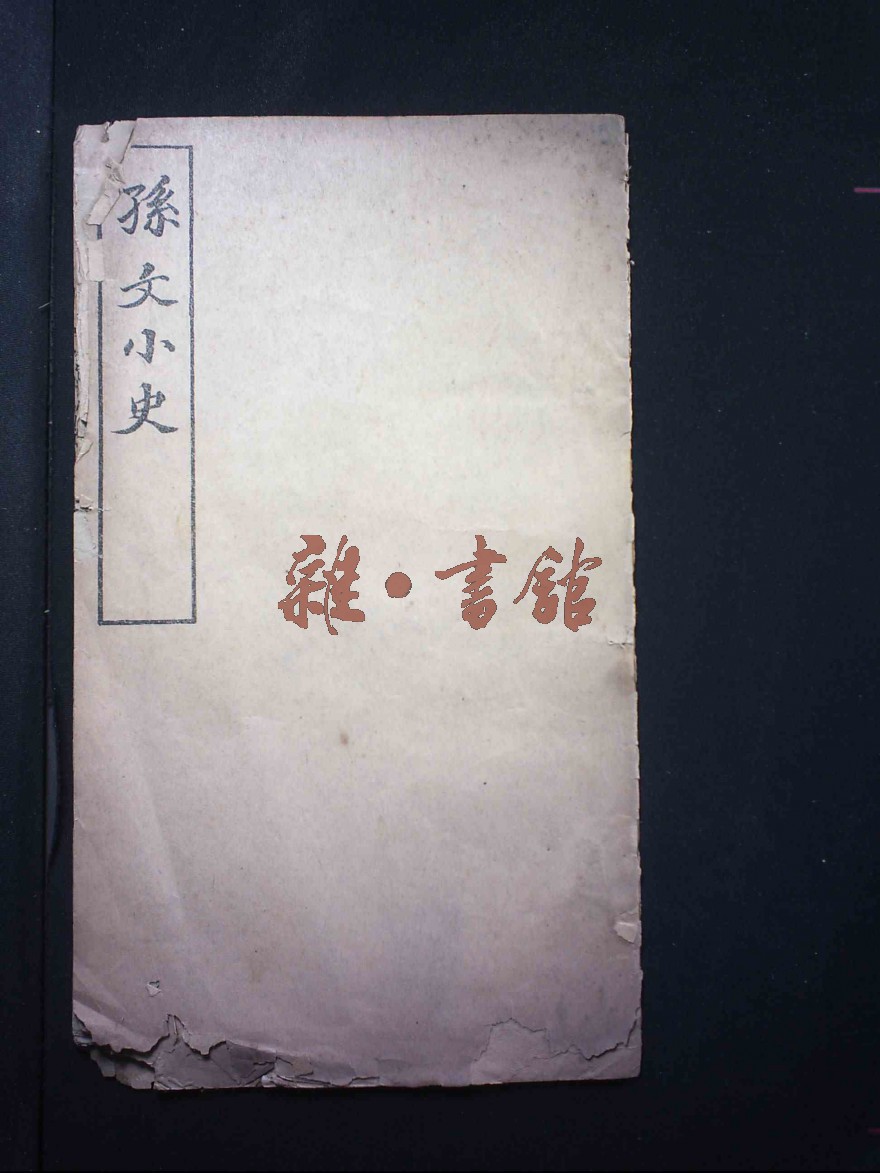 孫文小史
雜·書館